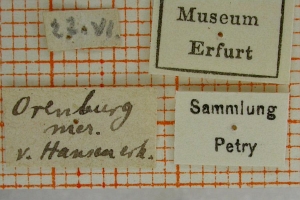 23.VI.
Museum
Erfurt
Orenburg
mer.
v. Hansen
Sammlung
Petry